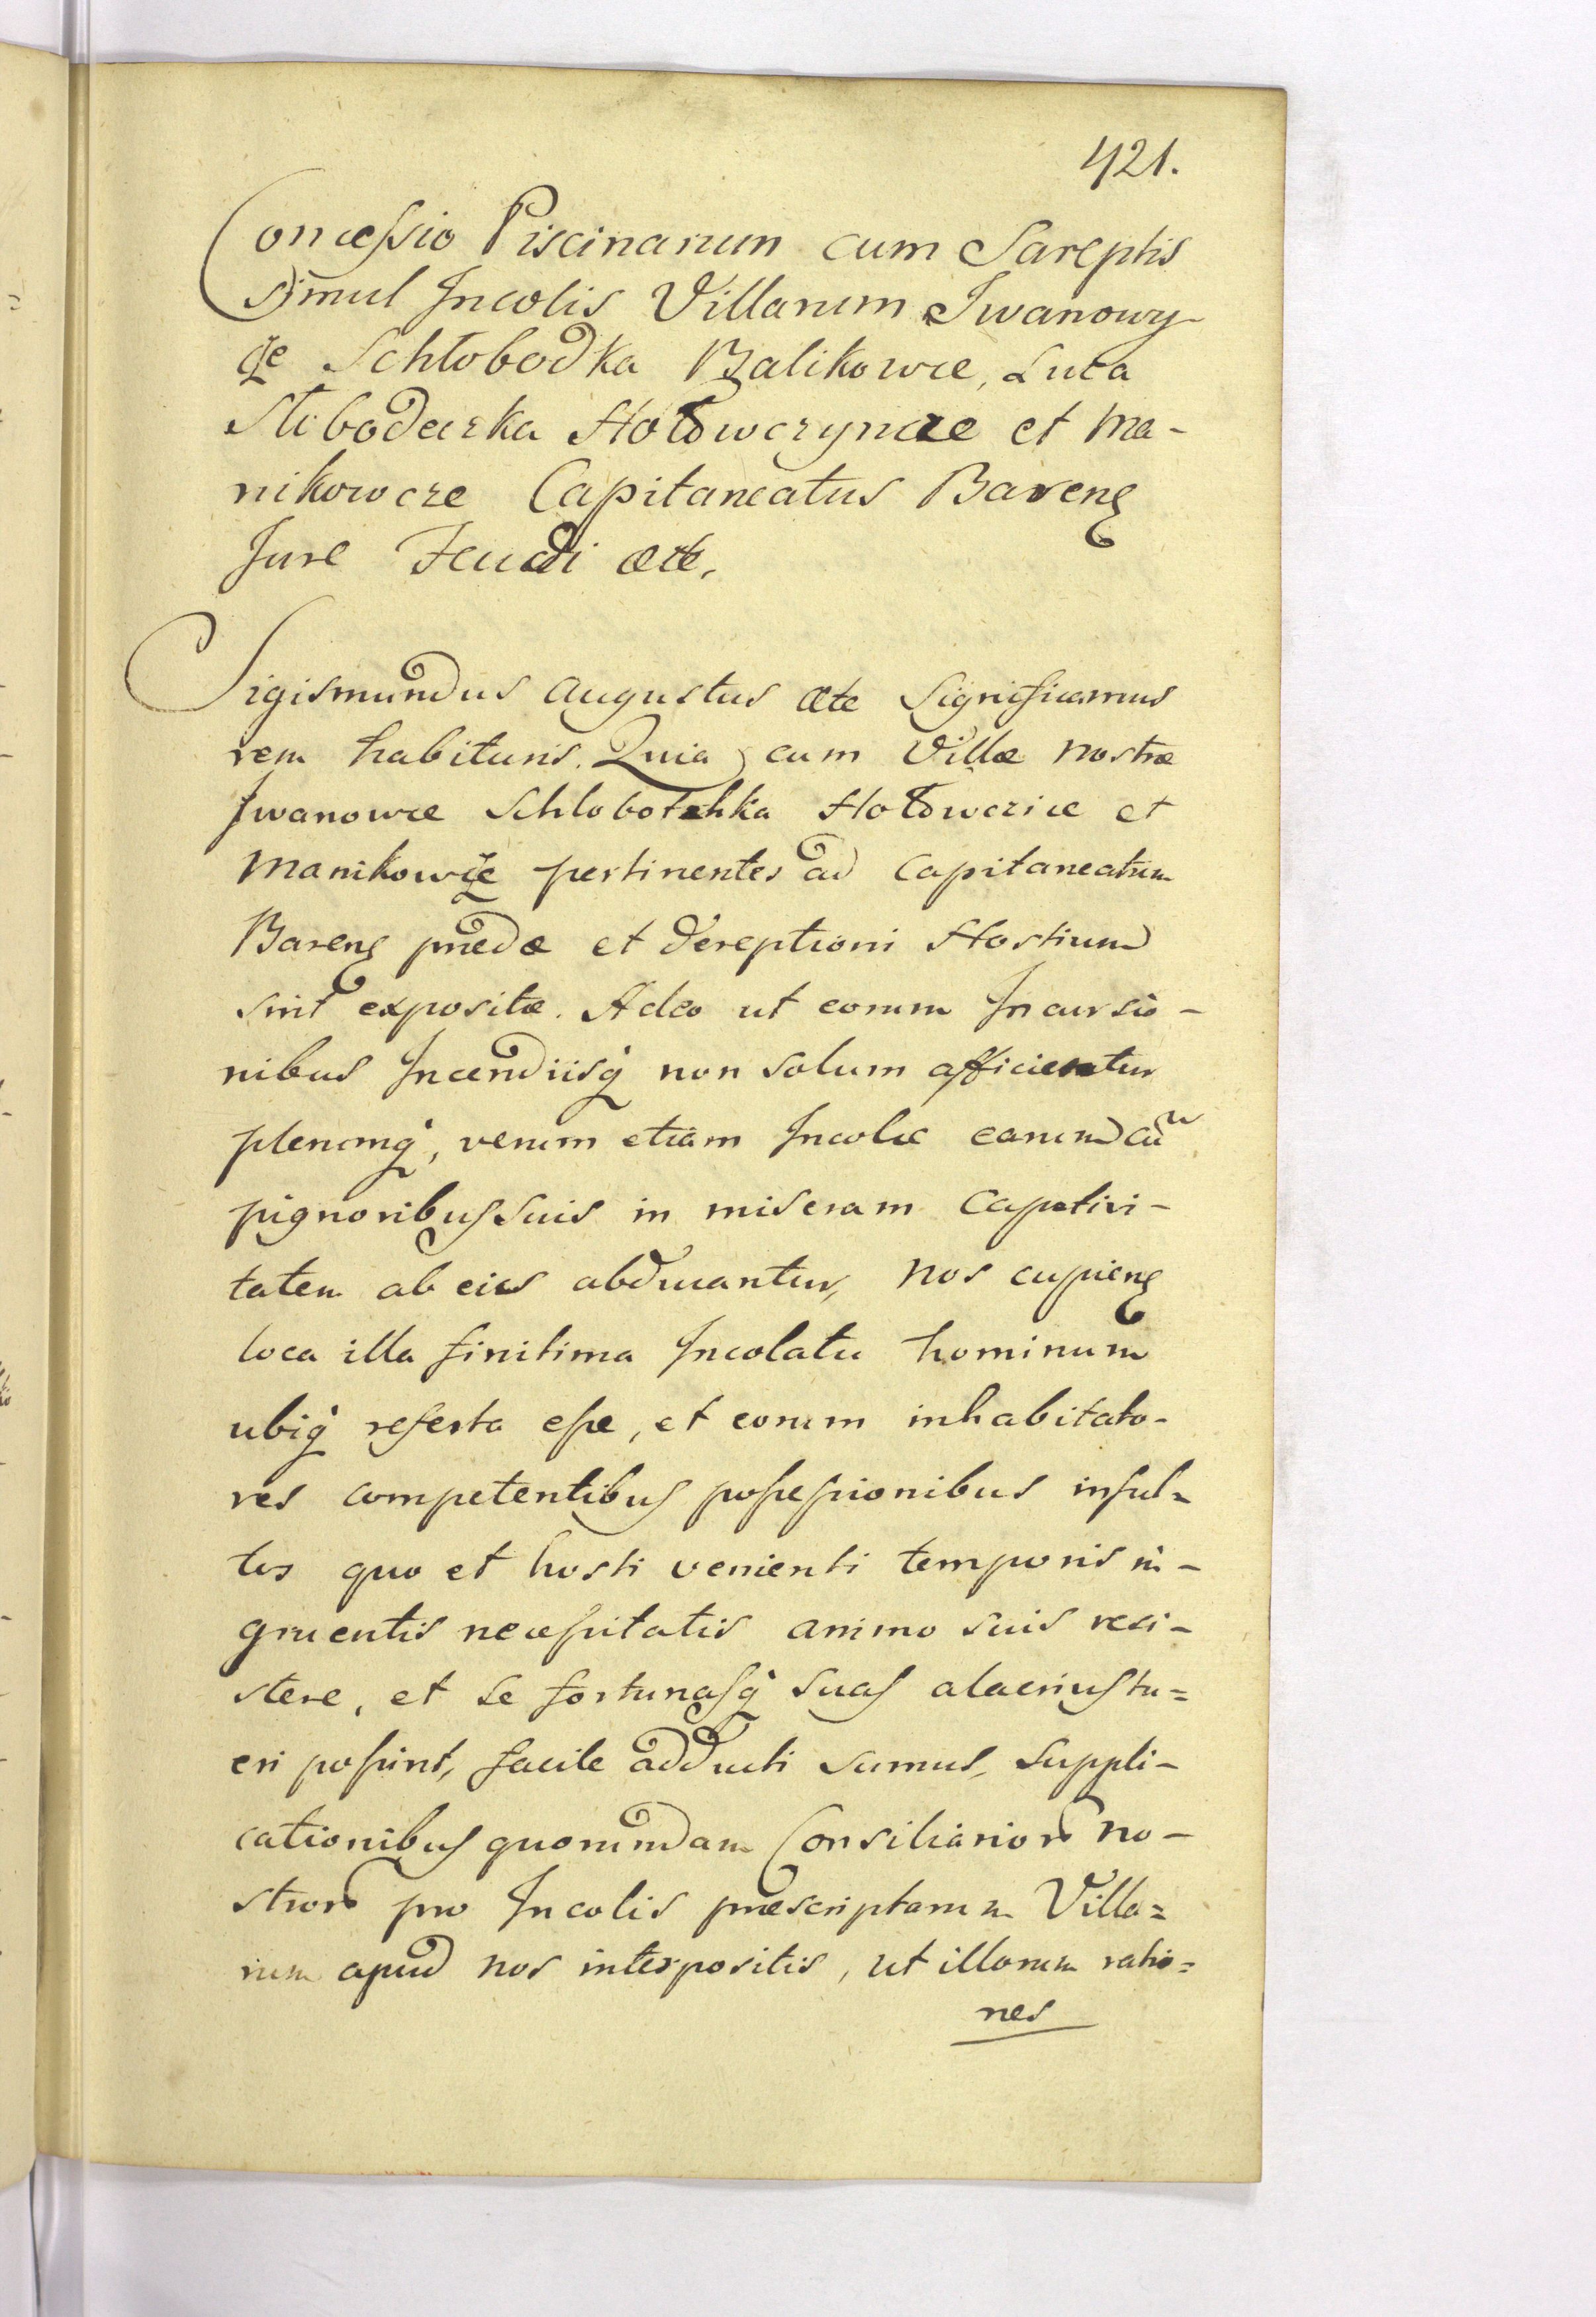 421.
Concessio Piscinarum cum Sareptis
Simul Incolis Villarum Iwanowy-
cze Schłobodka Balikowce, Luta
Słobodecrka Hołowczyncze et Ma-
nikowcze Capitaneatus Barens
Jure Feudi etc.
Sigismundus Augustus etc Significamus
rem habituris. Quia cum Villæ nostræ
Iwanowce Schlobotchka Hołowczice et
Manikowcze pertinentes ad Capitaneatum
Barens prædæ et dereptioni Hostium
sint expositæ. Adeo ut eorum Incursio-
nibus Incendiisq non solum afficientur
plerumq, verum etiam Incolæ earum cum
pignoribus suis in miseram captivi-
tatem ab eius abducantur, Nos cupiens
loca illa finitima Incolatu hominum
ubiq referta esse, et eorum inhabitato-
res competentibus possessionibus inful-
tos quo et hosti venienti temporis in-
gruentis necessitatis animo suis resi-
stere, et se fortunasq suas alacrius tu=
eri possint, facile adducti sumus, suppli-
cationibus quorumdam Consiliarior no-
stror pro Incolis præscriptarum Villa=
rum apud nos interpositis, ut illorum ratio=
nes